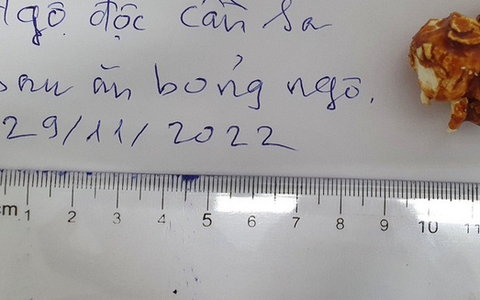 Ngộ độc cần sa
sau ăn bỏng ngô.
29/11/2022
cm 1 2 3 4 5 6 7 8 9 10 11